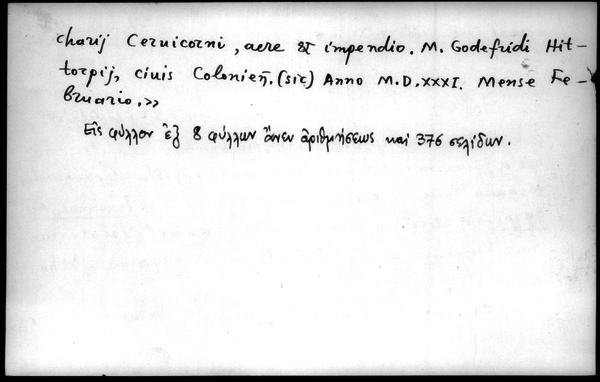 charij Ceruicorni, aere & impendio. M. Godefridi Hit-
torpij, ciuis Colonieñ. (sic) Anno M.D.XXXI. Mense Fe-
bruario.»
Εἰς φύλλον ἐξ 8 φύλλων ἄνευ ἀριθμήσεως καὶ 376 σελίδων.